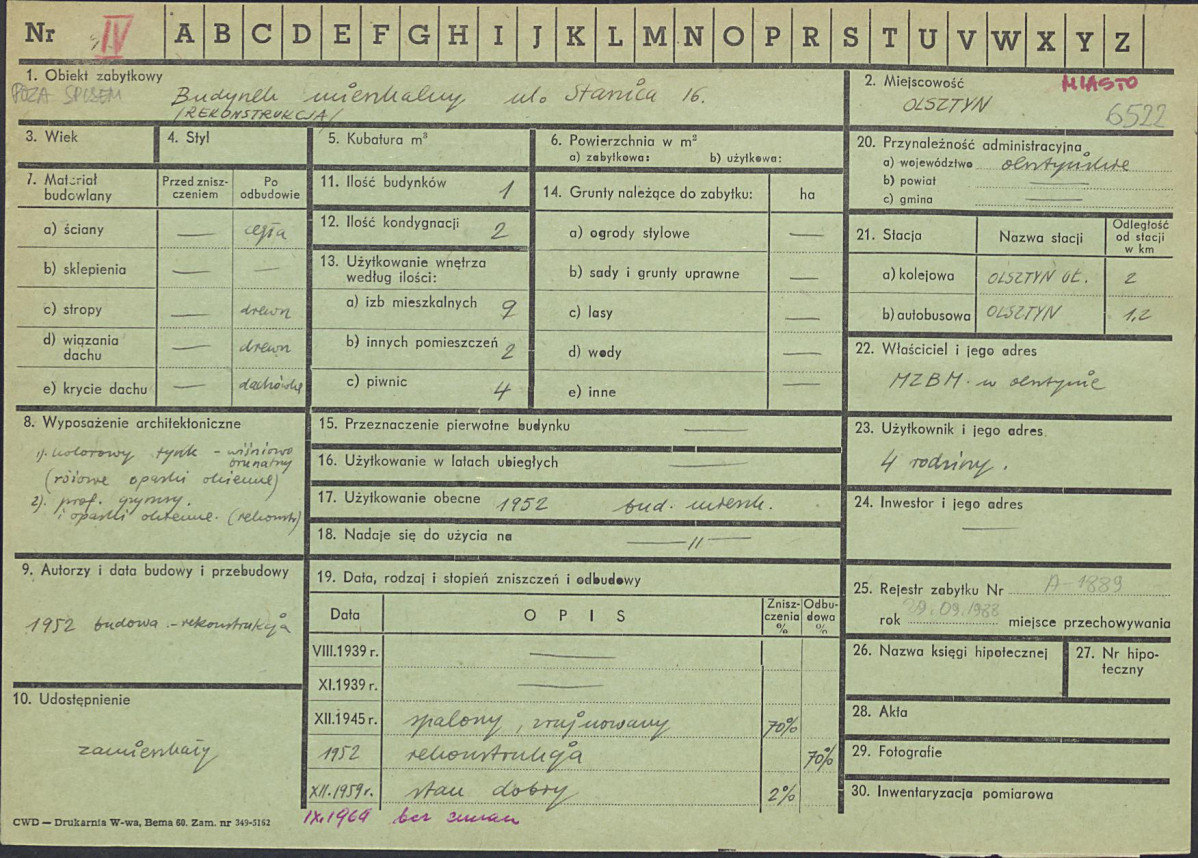 Nr IV A B C D E F G H I J K L M N O P R S T U V W X Y Z
1. Obiekt zabytkowy
POZA SPISEM
Budynek mieszkalny ul. Stanica 16.
/REKONSTRUKCJA/
2. Miejscowość MIASTO
OLSZTYN
6522
3. Wiek
4. Styl
5. Kubatura m³
6. Powierzchnia w m²
a) zabytkowa: b) użytkowa:
20. Przynależność administracyjna
a) województwo olsztyńskie
b) powiat —
c) gmina
7. Materiał budowlany
Przed znisz-
czeniem
Po
odbudowie
a) ściany — cegła
b) sklepienia — —
c) stropy — drewn
d) wiązania
dachu — drewn
e) krycie dachu — dachówka
11. Ilość budynków 1
12. Ilość kondygnacji 2
13. Użytkowanie wnętrza
według ilości:
a) izb mieszkalnych 9
b) innych pomieszczeń 2
c) piwnic 4
14. Grunty należące do zabytku: ha
a) ogrody stylowe —
b) sady i grunty uprawne —
c) lasy —
d) wody —
e) inne —
21. Stacja
Nazwa stacji
Odległość
od stacji
w km
a) kolejowa OLSZTYN Gł. 2
b) autobusowa OLSZTYN 1,2
22. Właściciel i jego adres
MZBM. w olsztynie
8. Wyposażenie architektoniczne
1). kolorowy tynk - wiśniowo
brunatny
(różowe opaski okienne)
2). prof. gzymsy.
i opaski okienne. (rekonstr)
15. Przeznaczenie pierwotne budynku —
16. Użytkowanie w latach ubiegłych —
17. Użytkowanie obecne 1952 bud. mieszk.
18. Nadaje się do użycia na — 〃 —
23. Użytkownik i jego adres
4 rodziny.
24. Inwestor i jego adres
—
9. Autorzy i data budowy i przebudowy
1952 budowa - rekonstrukcja
10. Udostępnienie
zamieszkały
19. Data, rodzaj i stopień zniszczeń i odbudowy
Data OPIS
Znisz-
czenia
%
Odbu-
dowa
%
VIII.1939 r. —
XI.1939 r. —
XII.1945 r. spalony, zrujnowany 70%
1952 rekonstrukcja 70%
XII.1959r. stan dobry 2%
IX.1969 bez zmian
25. Rejestr zabytku Nr A-1889
rok 29.09.1988 miejsce przechowywania
26. Nazwa księgi hipotecznej
27. Nr hipo-
teczny
28. Akta
29. Fotografie
30. Inwentaryzacja pomiarowa
CWD — Drukarnia W-wa, Bema 60. Zam. nr 349-5162